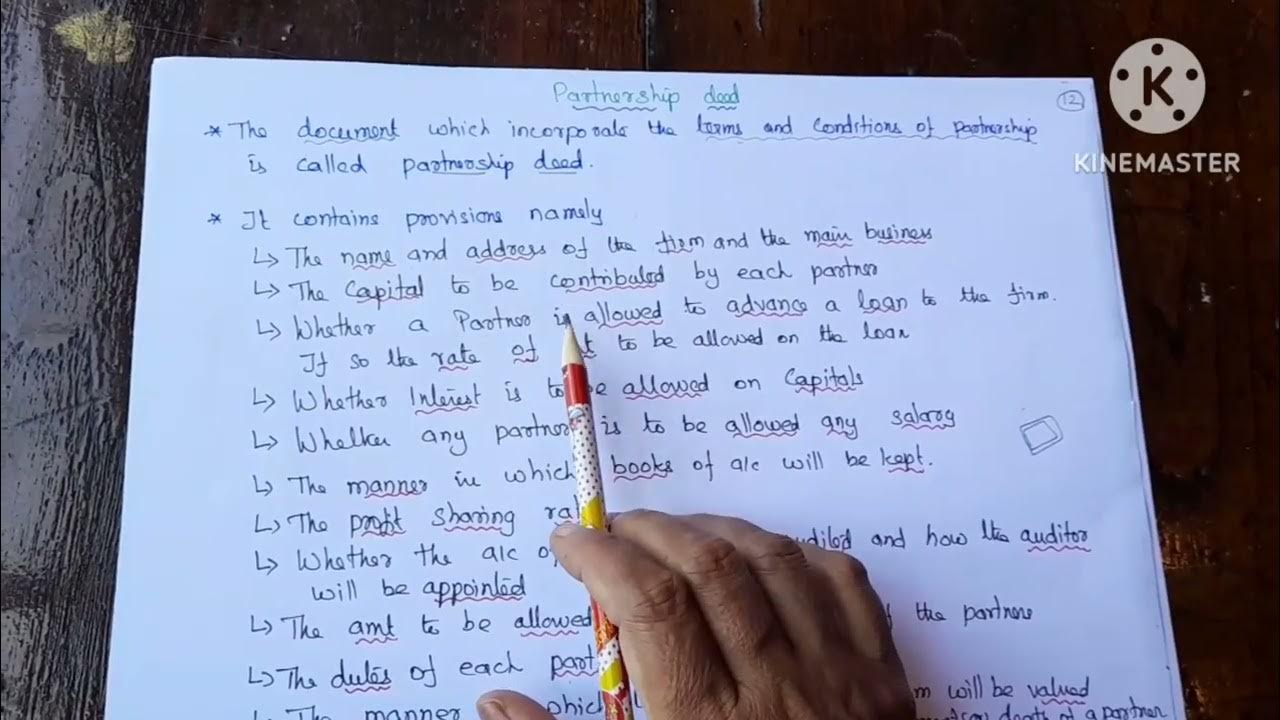 Partnership deed
12
K
KINEMASTER
* The document which incorporate the terms and conditions of partnership
is called partnership deed.
* It contains provisions namely
↳ The name and address of the firm and the main business
↳ The Capital to be contributed by each partner
↳ Whether a Partner is allowed to advance a loan to the firm.
If so the rate of to be allowed on the loan
↳ Whether Interest is to be allowed on Capitals
↳ Whether any partner is to be allowed any salary
↳ The manner in which books of a/c will be kept.
↳ The profit sharing
↳ Whether the a/c and how the auditor
will be appointed
↳ The amt to be allowed the partners
↳ The duties of each
↳ The manner which will be valued
of a partner